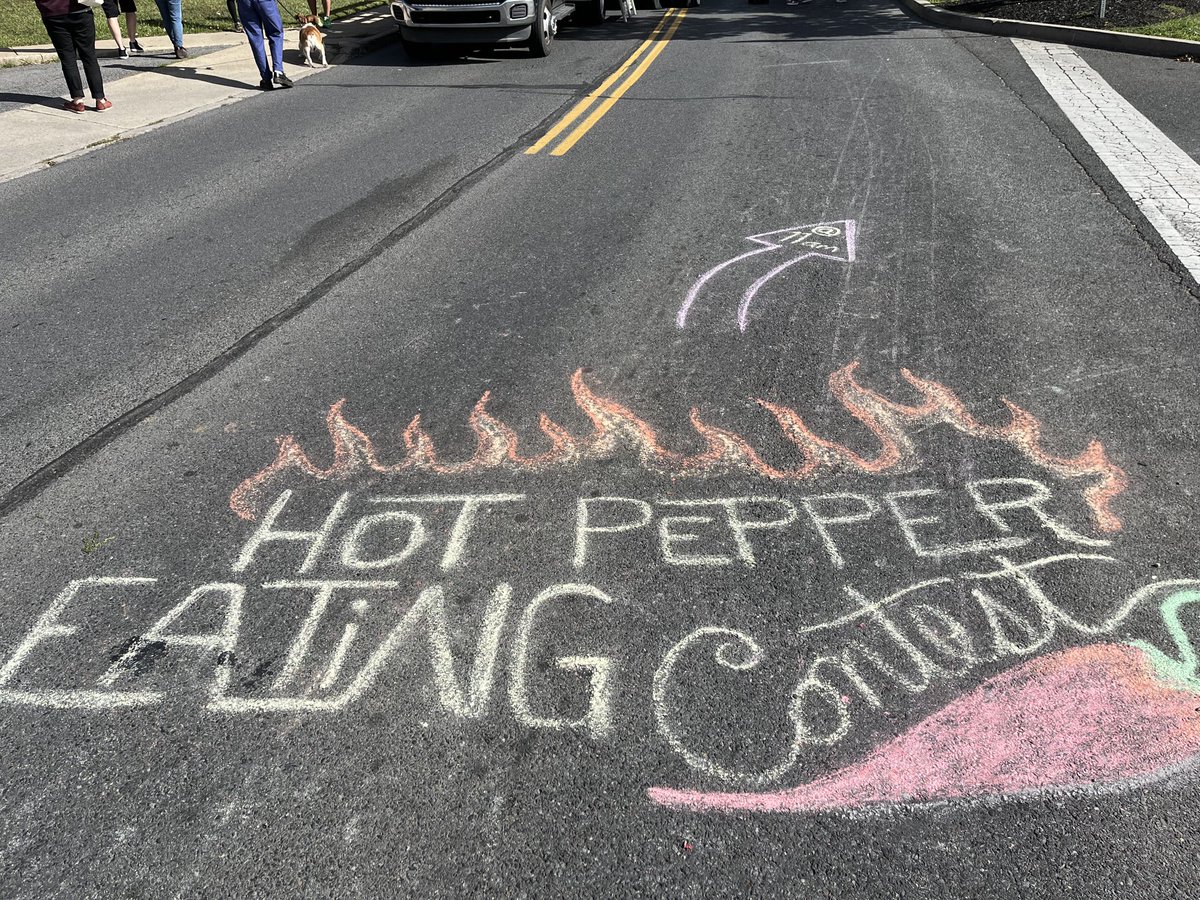 @
11am
HOT PEPPER
EATiNG Contest